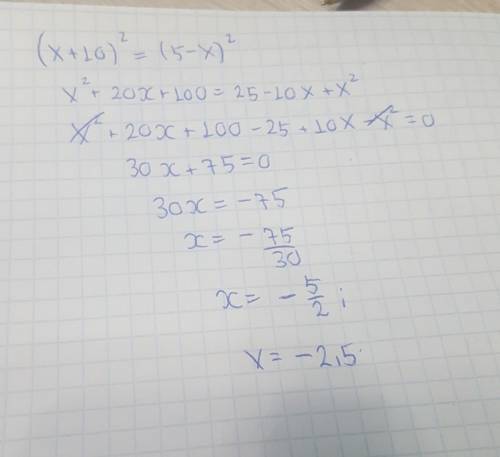 (x+10)² = (5-x)²
x² + 20x + 100 = 25 - 10x + x²
x² + 20x + 100 - 25 + 10x - x² = 0
30x + 75 = 0
30x = -75
x = - 75/30
x = - 5/2 ;
x = -2,5.